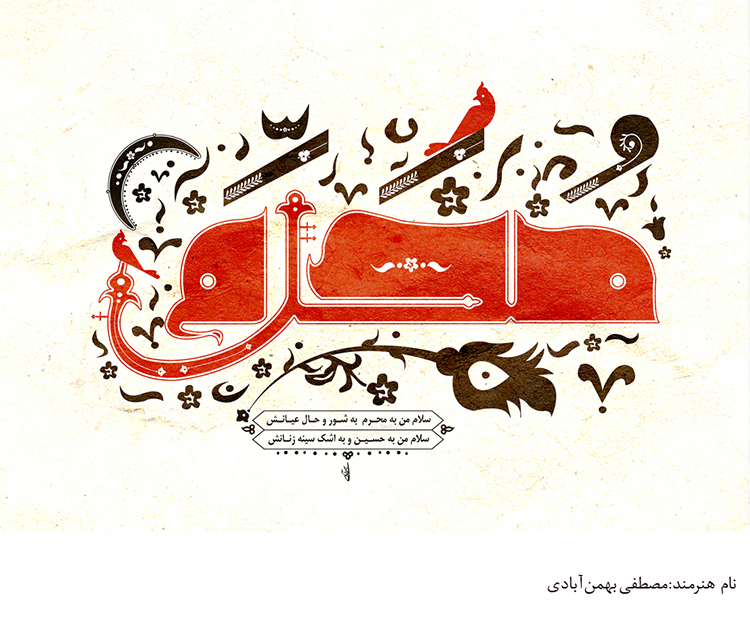 محرم
سلام من به محرم به شور و حال عیانش
سلام من به حسین و به اشک سینه زنانش
نام هنرمند:مصطفی بهمن‌آبادی